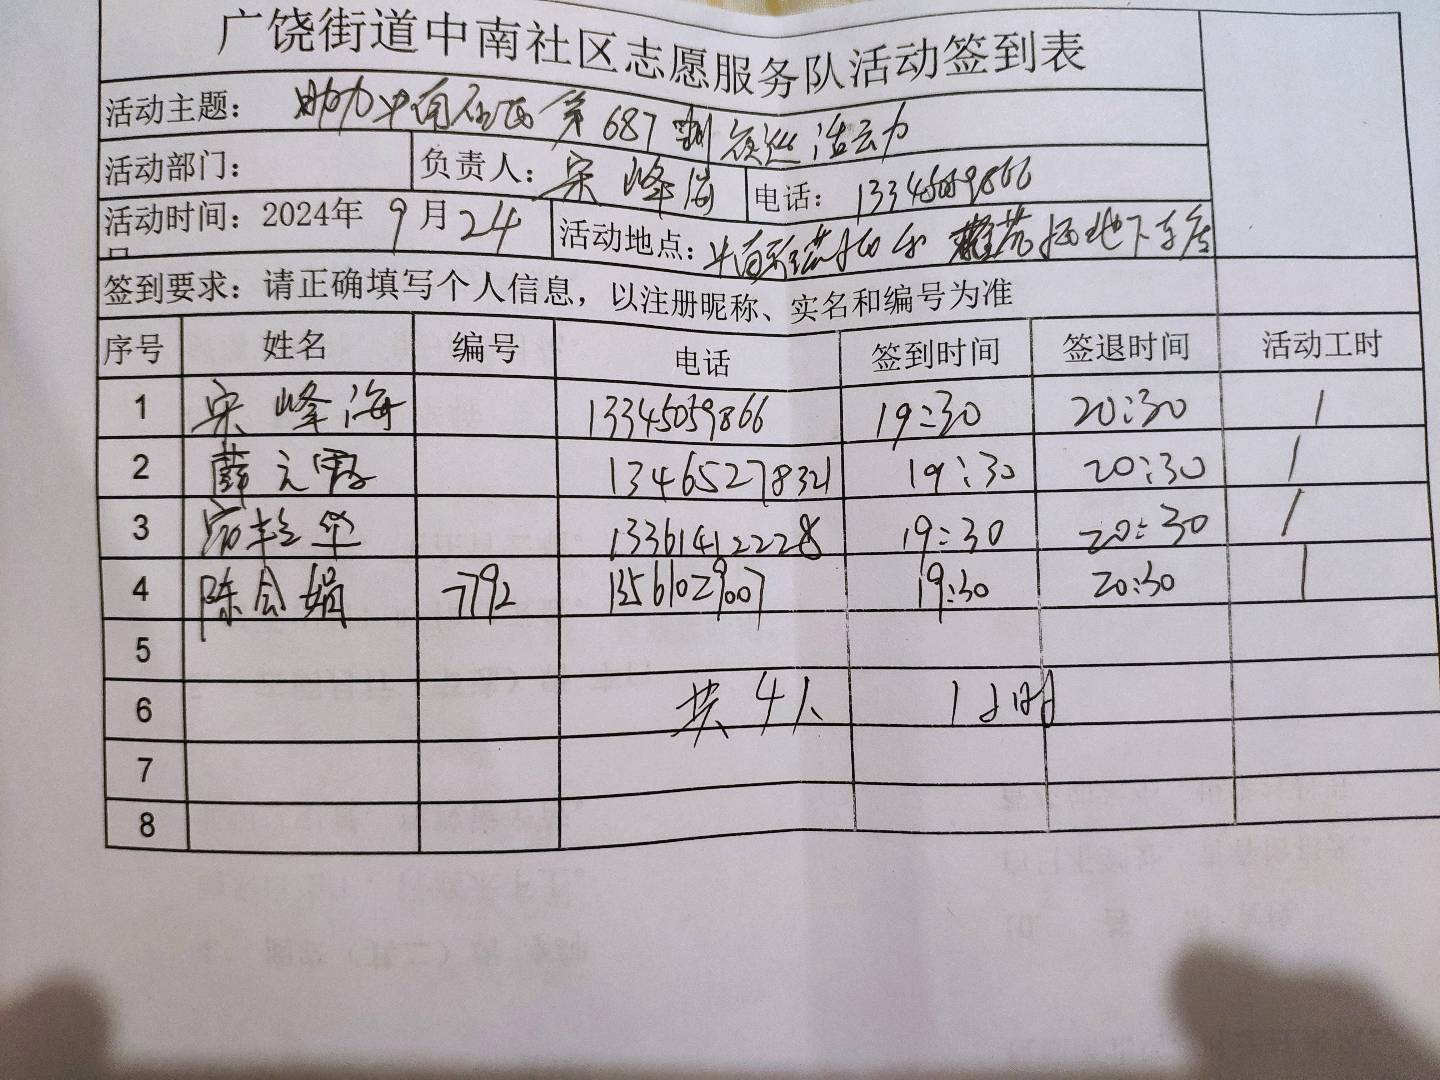 广饶街道中南社区志愿服务队活动签到表
活动主题: 助力中南社区第687 夜巡活动
活动部门: 负责人: 宋峰海 电话: 13345059866
活动时间: 2024年 9月24 活动地点: 地下车库
签到要求: 请正确填写个人信息, 以注册昵称、实名和编号为准
序号 姓名 编号 电话 签到时间 签退时间 活动工时
1 宋峰海 13345059866 19:30 20:30 1
2 薛元 13465278321 19:30 20:30 1
3 13361412228 19:30 20:30 1
4 陈会娟 7792 13561029007 19:30 20:30 1
5
6 共4人 1小时
7
8